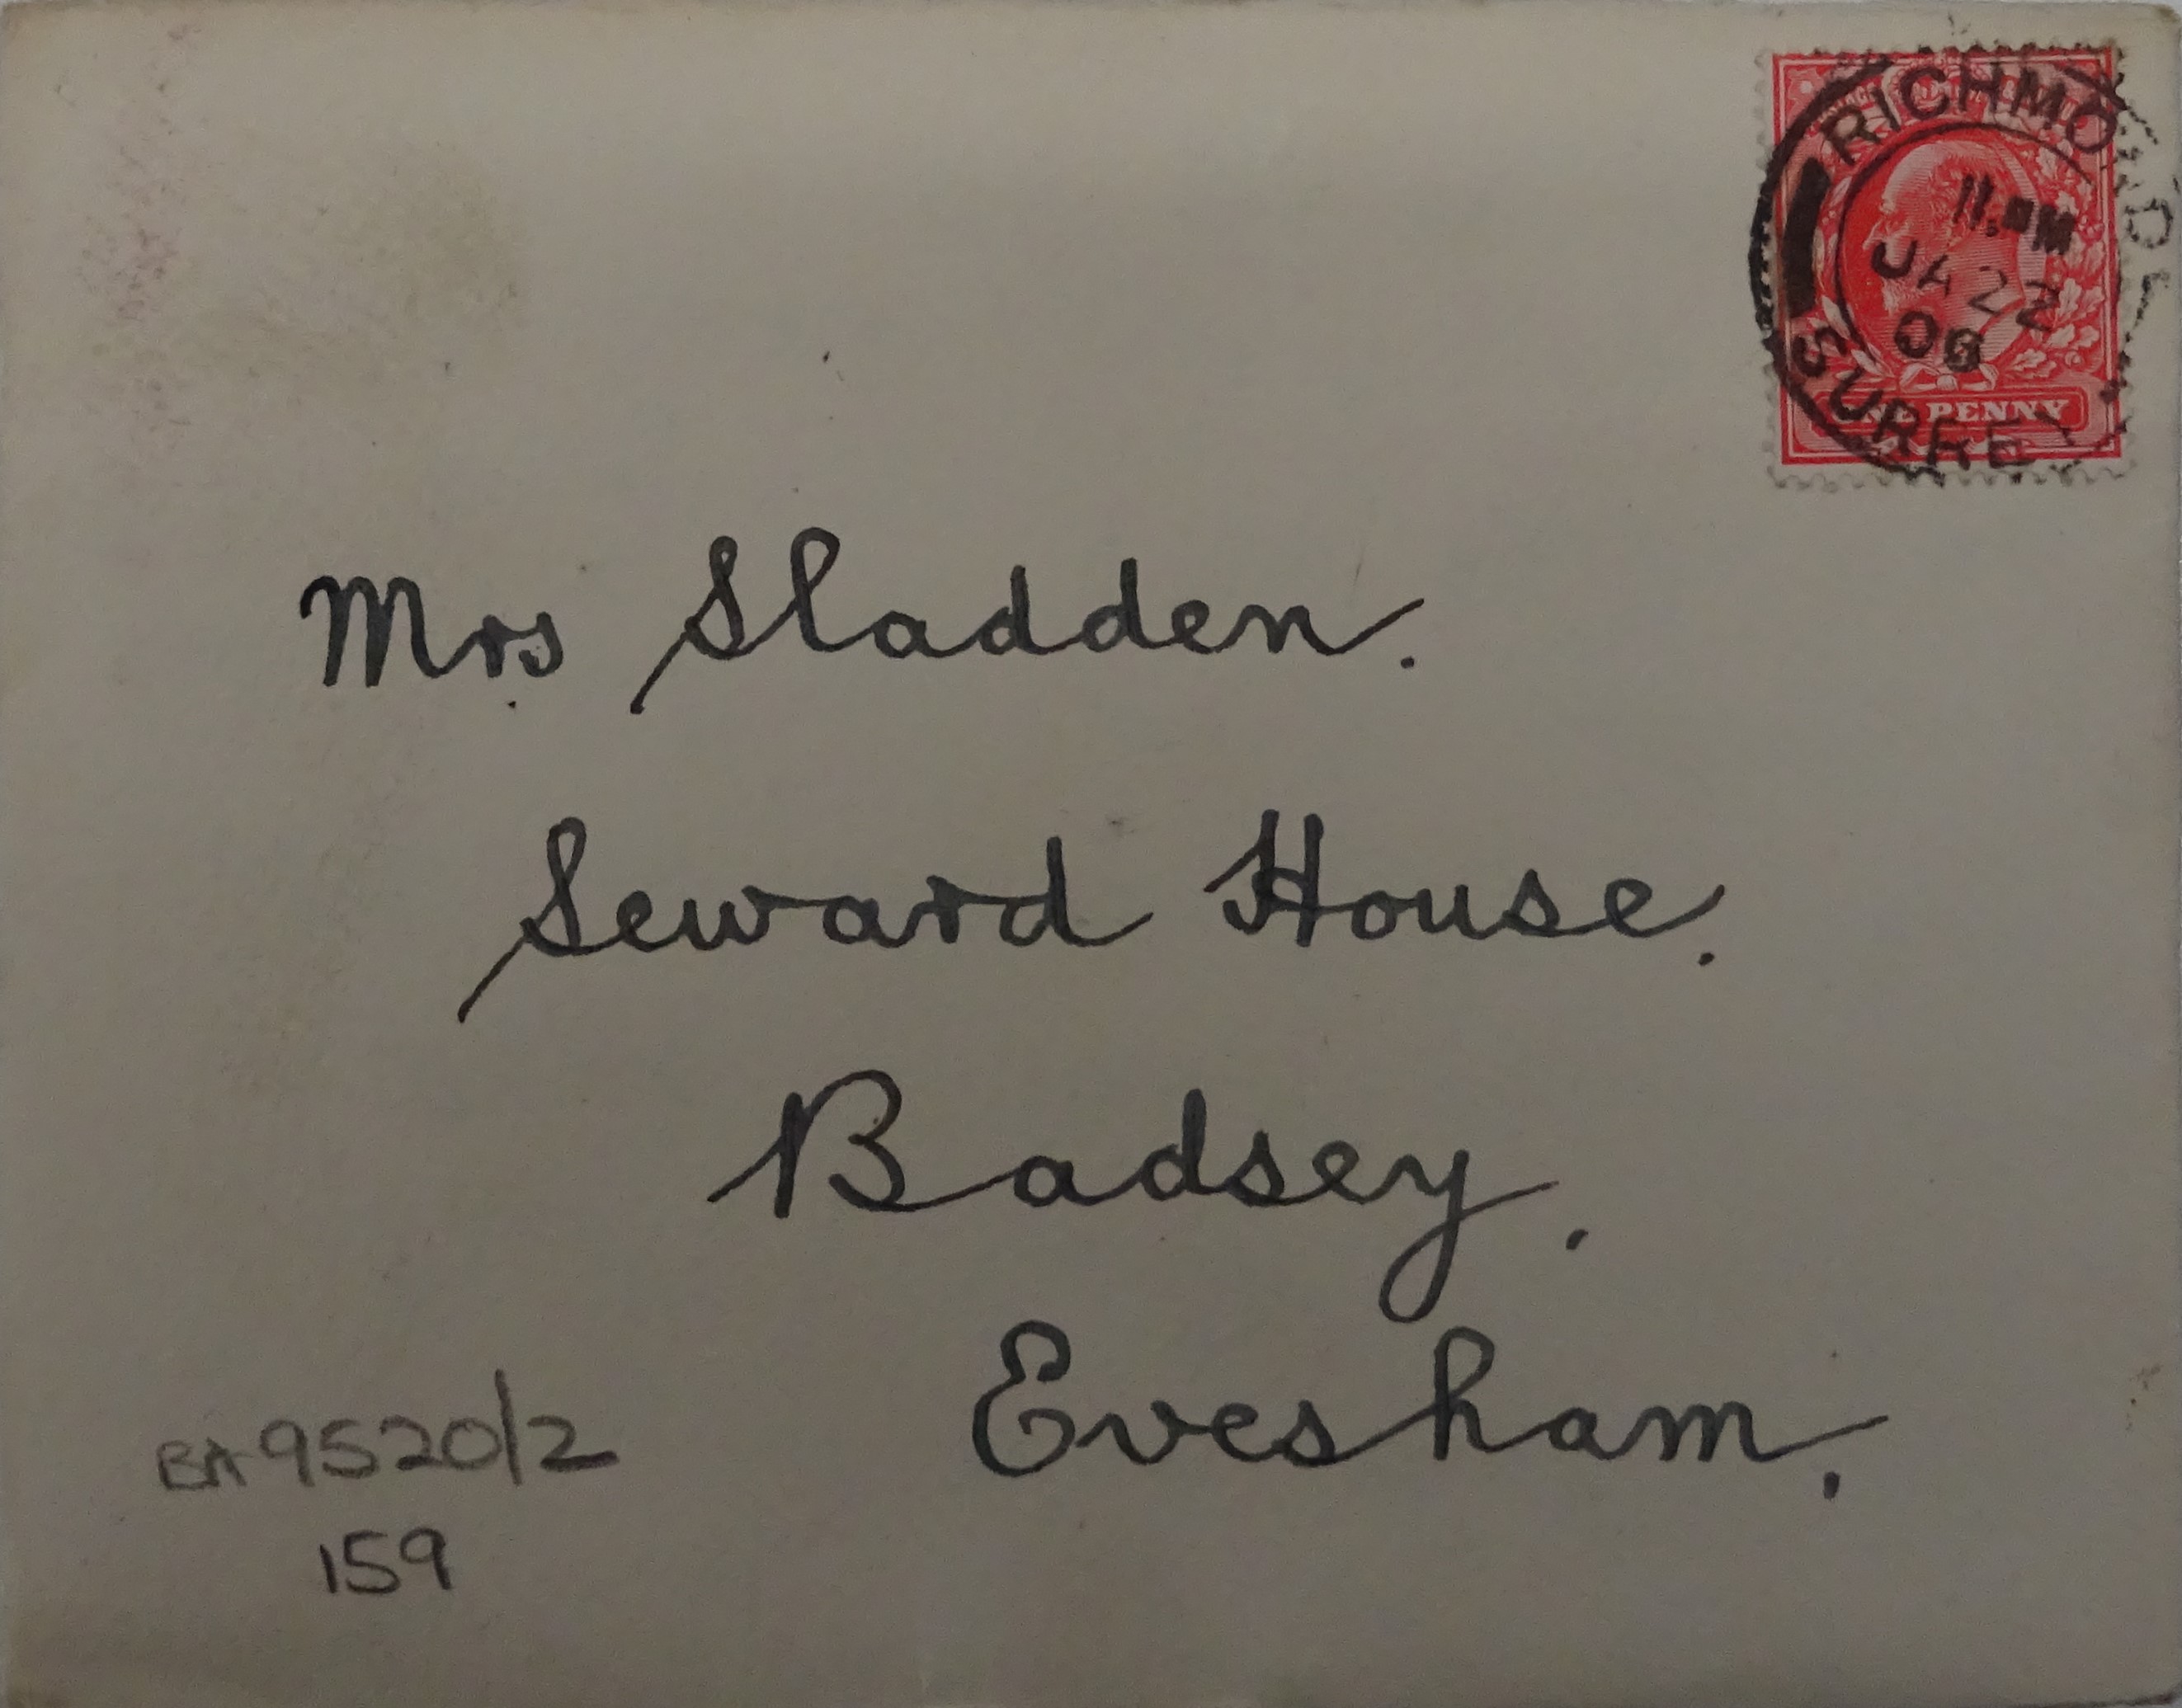 RICHMOND
JA 22
SURREY
PENNY
Mrs Sladden.
Seward House.
Badsey.
Evesham.
BA 9520/2
159